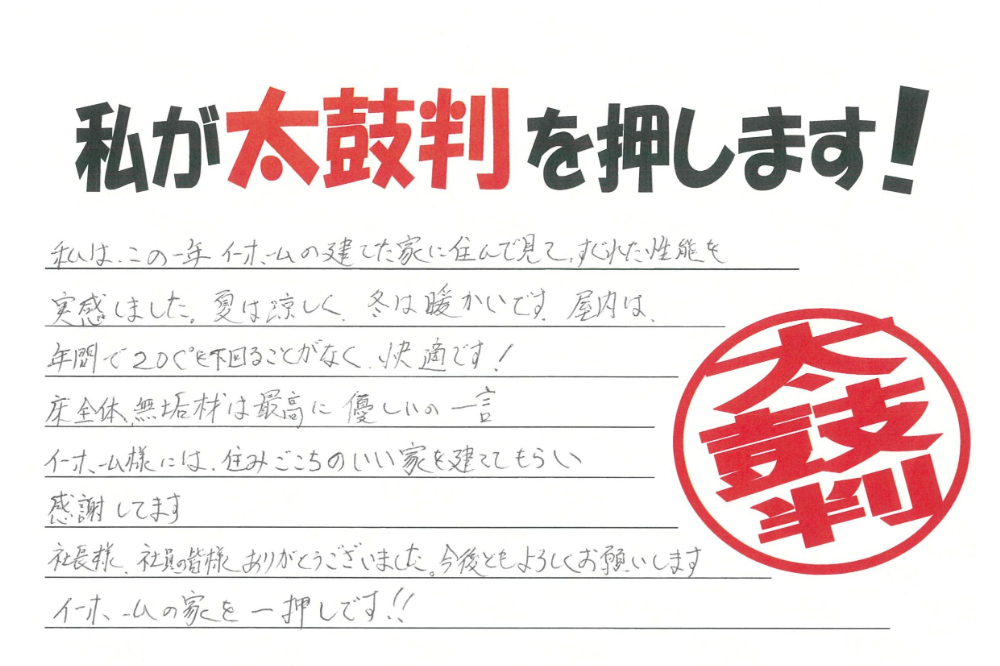 私が太鼓判を押します!
私は、この一年イーホームの建てた家に住んで見て、すぐれた性能を
実感しました。夏は涼しく、冬は暖かいです。屋内は、
年間で20℃を下回ることがなく、快適です!
床全体、無垢材は最高に優しいの一言
イーホーム様には、住みごこちのいい家を建ててもらい
感謝してます
社長様、社員の皆様、ありがとうございました。今後ともよろしくお願いします
イーホームの家を一押しです!!
太
鼓
判